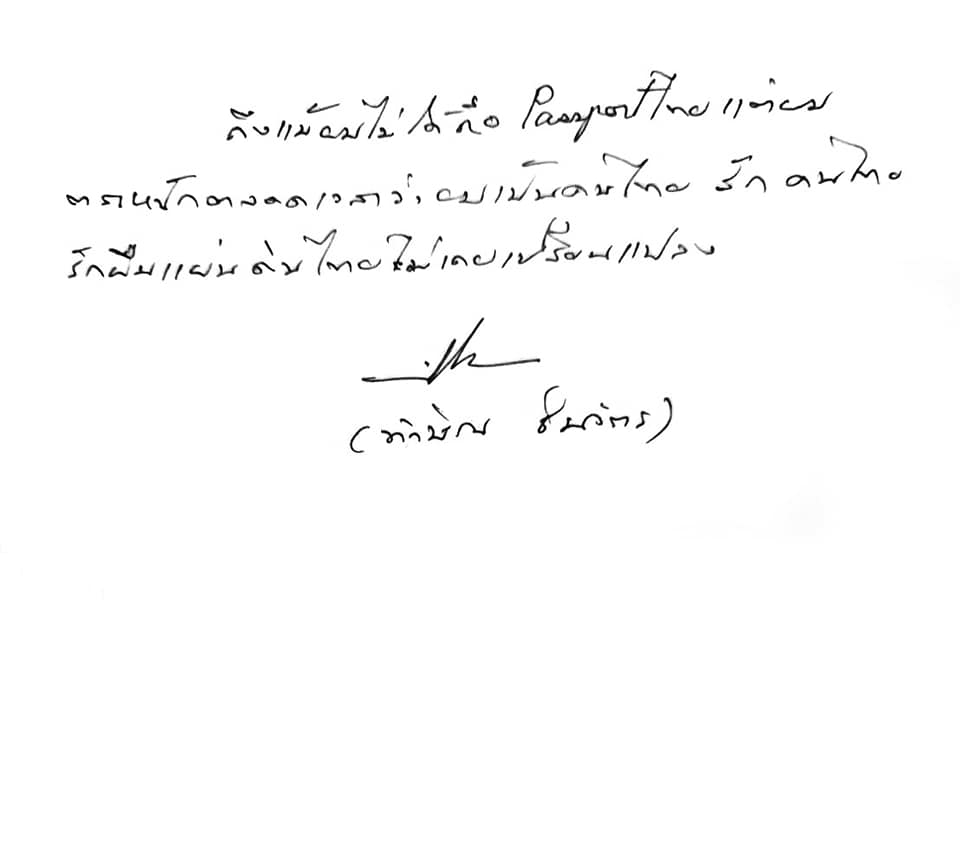 ถึงแม้ผมไม่ได้ถือ Passport ไทย แต่ผม
ตระหนักตลอดเวลาว่า ผมเป็นคนไทย รักคนไทย
รักผืนแผ่นดินไทยไม่เคยเปลี่ยนแปลง
(ทักษิณ ชินวัตร)